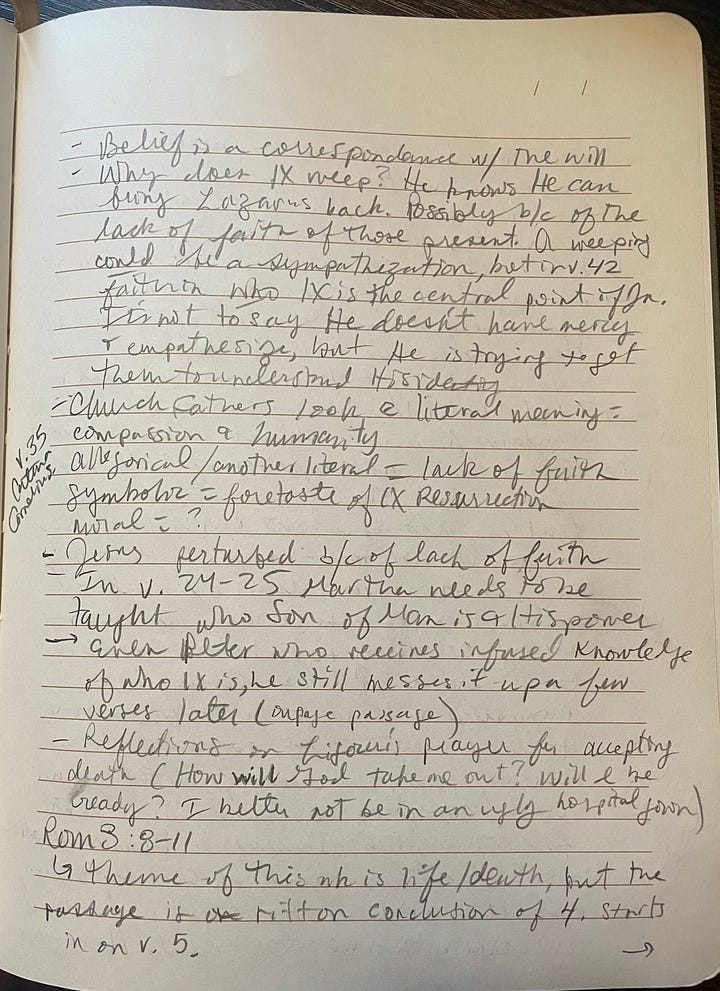 - Belief is a correspondance w/ the will
- Why does JX weep? He knows He can
bring Lazarus back. Possibly b/c of the
lack of faith of those present. A weeping
could be a sympathization, but in v. 42
faith in who JX is the central point of Jn.
not to say He doesn't have mercy
& empathesize, but He is trying to get
them to understand His identity
- Church Fathers look @ literal meaning =
compassion & humanity
v. 35
allegorical/another literal = lack of faith
symbolic = foretaste of JX Resurrection
moral = ?
- Jesus perturbed b/c of lack of faith
- In v. 24-25 Martha needs to be
taught who Son of Man is & His power
→ even Peter who receives infused knowledge
of who JX is, he still messes it up a few
verses later ( passage)
- Reflections on Ligouri's prayer for accepting
death (How will God take me out? Will I be
ready? I better not be in an ugly hospital gown)
Rom 3:8-11
↳ theme of this is life/death, but the
passage is conclusion of 4. starts
in on v. 5.
→